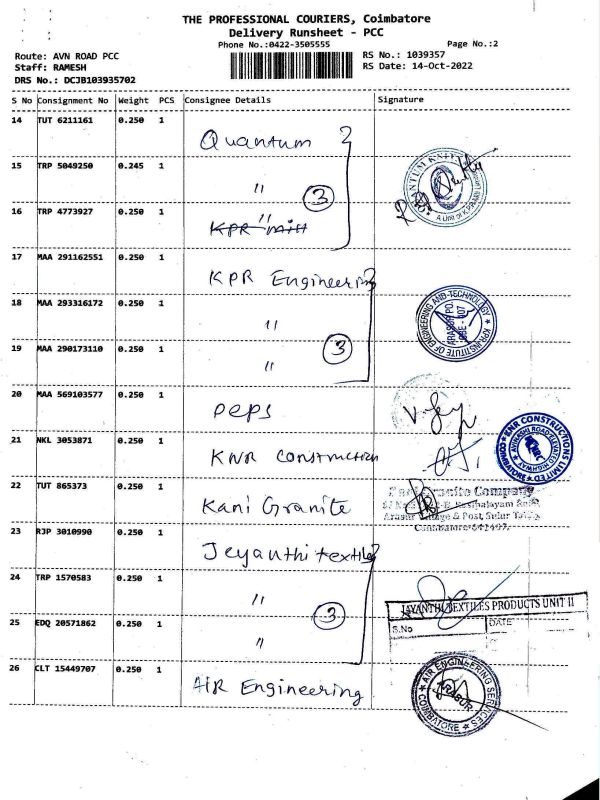 THE PROFESSIONAL COURIERS, Coimbatore
Delivery Runsheet - PCC
Phone No.:0422-3505555
Page No.:2
Route: AVN ROAD PCC
RS No.: 1039357
Staff: RAMESH
RS Date: 14-Oct-2022
DRS No.: DCJB103935702
S No Consignment No Weight PCS Consignee Details Signature
14 TUT 6211161 0.250 1 Quantum
15 TRP 5049250 0.245 1 "
3
16 TRP 4773927 0.250 1 "
KPR mill
17 MAA 291162551 0.250 1 KPR Engineering
18 MAA 293316172 0.250 1 "
3
19 MAA 290173110 0.250 1 "
20 MAA 569103577 0.250 1 Peps
21 NKL 3053871 0.250 1 KNR Construction
22 TUT 865373 0.250 1 Kani Granite
23 RJP 3010990 0.250 1 Jeyanthi textile
24 TRP 1570583 0.250 1 "
3
25 EDQ 20571862 0.250 1 "
26 CLT 15449707 0.250 1 AIR Engineering
QUANTUM KNITS
A Unit of KPR
KPR INSTITUTE OF ENGINEERING AND TECHNOLOGY
ARASUR PO.
CBE - 407
KNR CONSTRUCTIONS LIMITED
COIMBATORE
Granite Company
Coimbatore-641407.
JAYANTHI TEXTILES PRODUCTS UNIT II
S.No DATE
AIR ENGINEERING SERVICES
ARASUR
COIMBATORE